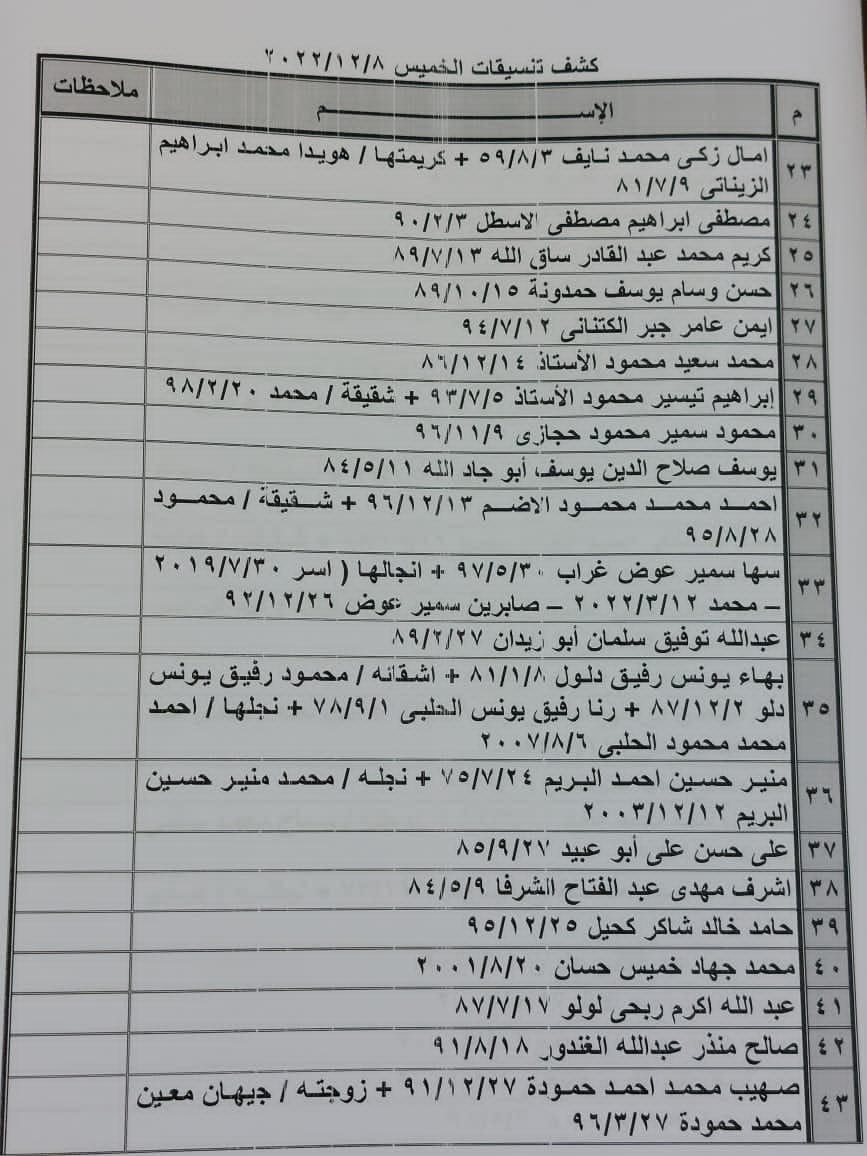 كشف تنسيقات الخميس ٢٠٢٢/١٢/٨
م الإســـــــم ملاحظات
٢٣ امال زكى محمد نايف ٥٩/٨/٣ + كريمتها / هويدا محمد ابراهيم
الزيناتى ٨١/٧/٩
٢٤ مصطفى ابراهيم مصطفى الاسطل ٩٠/٢/٣
٢٥ كريم محمد عبد القادر ساق الله ٨٩/٧/١٣
٢٦ حسن وسام يوسف حمدونة ٨٩/١٠/١٥
٢٧ ايمن عامر جبر الكتنانى ٩٤/٧/١٢
٢٨ محمد سعيد محمود الأستاذ ٨٦/١٢/١٤
٢٩ إبراهيم تيسير محمود الأستاذ ٩٣/٧/٥ + شقيقة / محمد ٩٨/٢/٢٠
٣٠ محمود سمير محمود حجازى ٩٦/١١/٩
٣١ يوسف صلاح الدين يوسف أبو جاد الله ٨٤/5/١١
٣٢ احمـد محمـد محمـود الاضـم ٩٦/١٢/١٣ + شـقيقة / محمـود
٩٥/٨/٢٨
٣٣ سها سمير عوض غراب ٩٧/٥/٣٠ + انجالها ( اسر ٢٠١٩/٧/٣٠
– محمد ٢٠٢٢/٣/١٢ – صابرين سمير عوض ٩٢/١٢/٢٦
٣٤ عبدالله توفيق سلمان أبو زيدان ٨٩/٢/٢٧
٣٥ بهاء يونس رفيق دلول ٨١/١/٨ + اشقائه / محمود رفيق يونس
دلو ٨٧/١٢/٢ + رنا رفيق يونس الحلبى ٧٨/٩/١ + نجلها / احمد
محمد محمود الحلبي ٢٠٠٧/٨/٦
٣٦ منير حسين احمد البريم ٧٥/٧/٢٤ + نجله / محمد منير حسين
البريم ٢٠٠٣/١٢/١٢
٣٧ على حسن على أبو عبيد ٨٥/٩/٢٧
٣٨ اشرف مهدى عبد الفتاح الشرفا ٨٤/٥/٩
٣٩ حامد خالد شاكر كحيل ٩٥/١٢/٢٥
٤٠ محمد جهاد خميس حسان ٢٠٠١/٨/٢٠
٤١ عبد الله اكرم ربحى لولو ٨٧/٧/١٧
٤٢ صالح منذر عبدالله الغندور ٩١/٨/١٨
٤٣ صهيب محمد احمد حمودة ٩١/١٢/٢٧ + زوجته / جيهان معين
محمد حمودة ٩٦/٣/٢٧